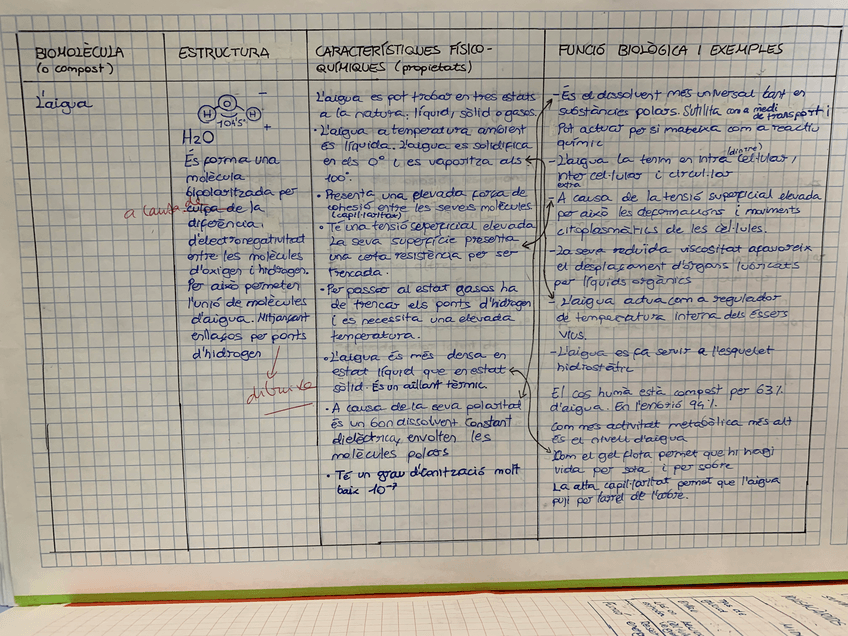 BIOMOLÈCULA
(o compost)
ESTRUCTURA
CARACTERÍSTIQUES FÍSICO-
QUÍMIQUES (propietats)
FUNCIÓ BIOLÒGICA I EXEMPLES
L'aigua
O
H H
104'5°
-
+
H2O
És forma una
molècula
bipolaritzada per
culpa de la
a causa de
diferència
d'electronegativitat
entre les molècules
d'oxigen i hidrogen.
Per això permeten
l'unió de molècules
d'aigua. Mitjançant
enllaços per ponts
d'hidrogen
dibuixa
L'aigua es pot trobar en tres estats
a la natura: líquid, sòlid o gasos.
• L'aigua a temperatura ambient
és líquida. L'aigua es solidifica
en els 0° i es vaporitza als
100°.
• Presenta una elevada força de
cohesió entre les seves molècules
(capil·laritat)
• Té una tensió superficial elevada
La seva superfície presenta
una certa resistència per ser
trencada.
• Per passar al estat gasos ha
de trencar els ponts d'hidrogen
i es necessita una elevada
temperatura.
• L'aigua és més densa en
estat líquid que en estat
sòlid. És un aïllant tèrmic.
• A causa de la seva polaritat
és un bon dissolvent constant
dielèctrica, envolten les
molècules polars
• Té un grau d'ionització molt
baix 10⁻⁷
- És el dissolvent més universal tant en
substàncies polars. S'utilita com a medi
de transport i
Pot actuar per si mateixa com a reactiu
químic
- L'aigua la tenim en intra cel·lular,
(dintre)
inter cel·lular i circul·lar
extra
A causa de la tensió superficial elevada
per això les deformacions i moviments
citoplasmàtics de les cèl·lules.
- La seva reduida viscositat afavoreix
el desplaçament d'òrgans lubricats
per líquids orgànics
- L'aigua actua com a regulador
de temperatura interna dels éssers
vius.
- L'aigua es fa servir a l'esquelet
hidrostàtic
El cos humà està compost per 63%
d'aigua. En l'enbrió 94%.
Com més activitat metabòlica més alt
és el nivell d'aigua
Com el gel flota permet que hi hagi
vida per sota i per sobre
La alta capil·laritat permet que l'aigua
puji per l'arrel de l'arbre.